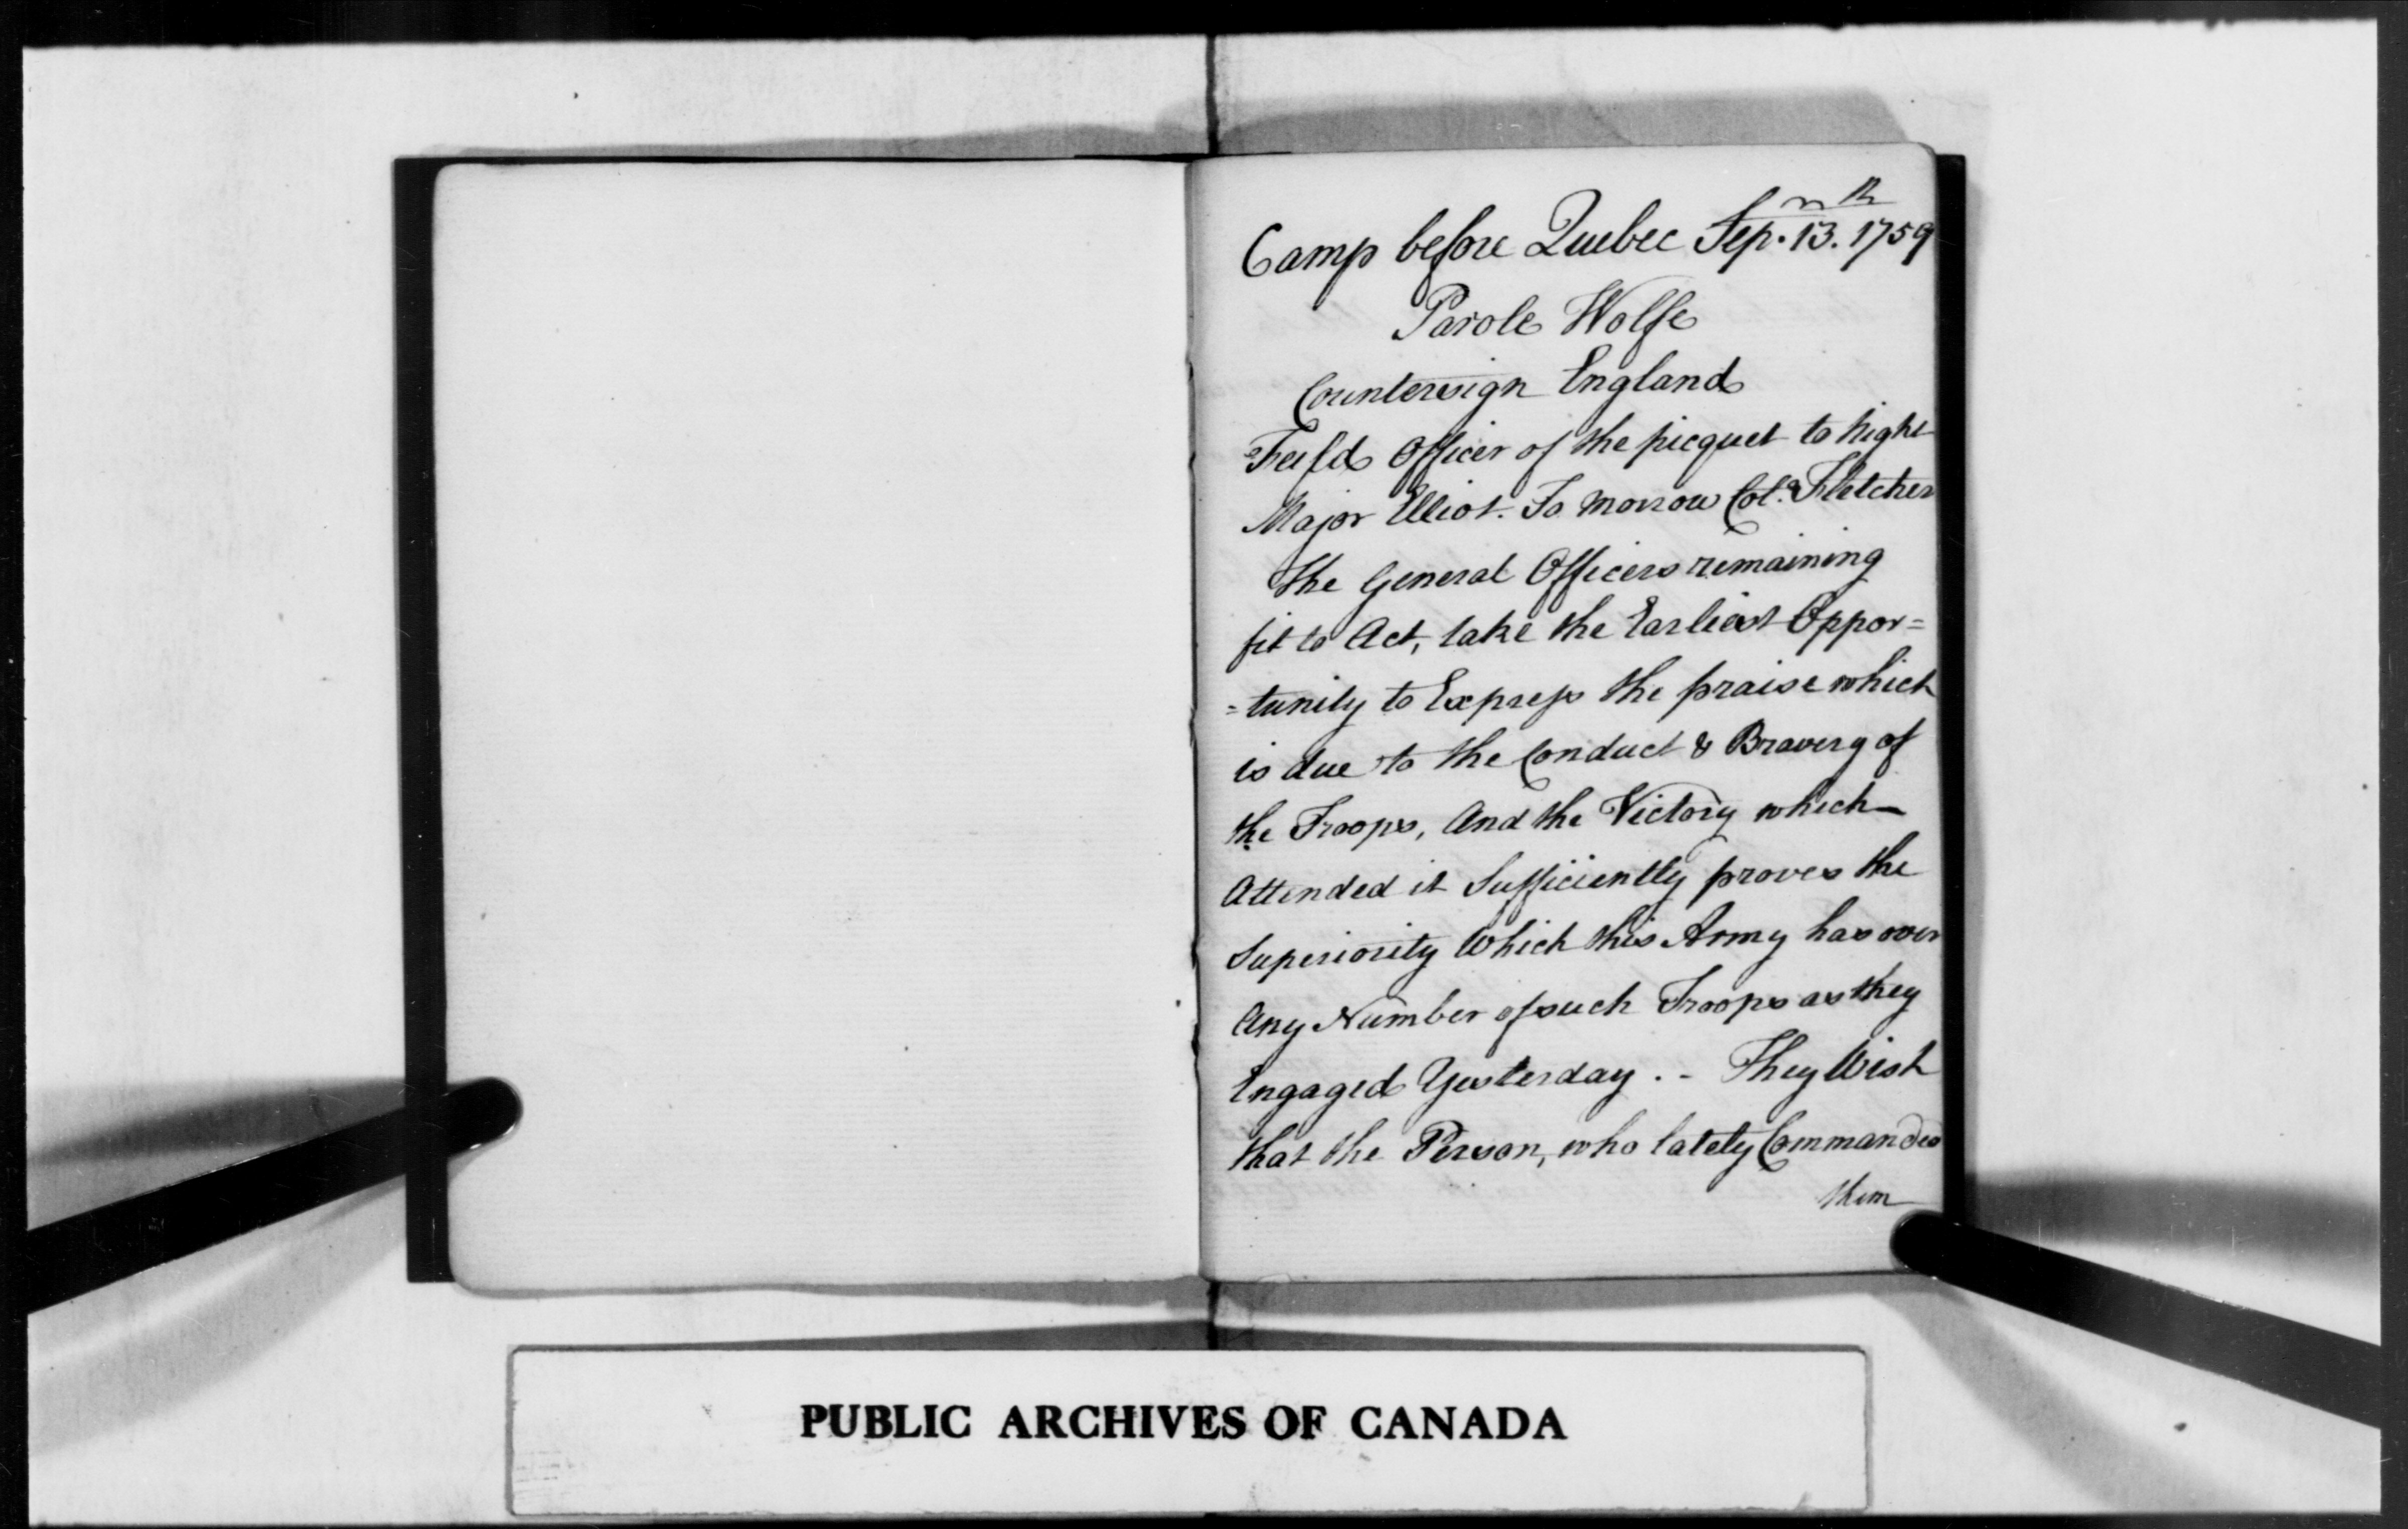 Camp before Quebec Sep. 13. 1759
Parole Wolfe
Countersign England
Feild Officer of the picquet to night
Major Elliot. To morrow Col.º Fletcher
The General Officers remaining
fit to Act, take the Earliest Oppor=
=tunity to Express the praise which
is due to the Conduct & Bravery of
the Troops, And the Victory which
Attended it Sufficiently proves the
Superiority Which this Army has over
Any Number of such Troops as they
Engaged Yesterday. - They Wish
that the Person, who lately Commanded
them
PUBLIC ARCHIVES OF CANADA